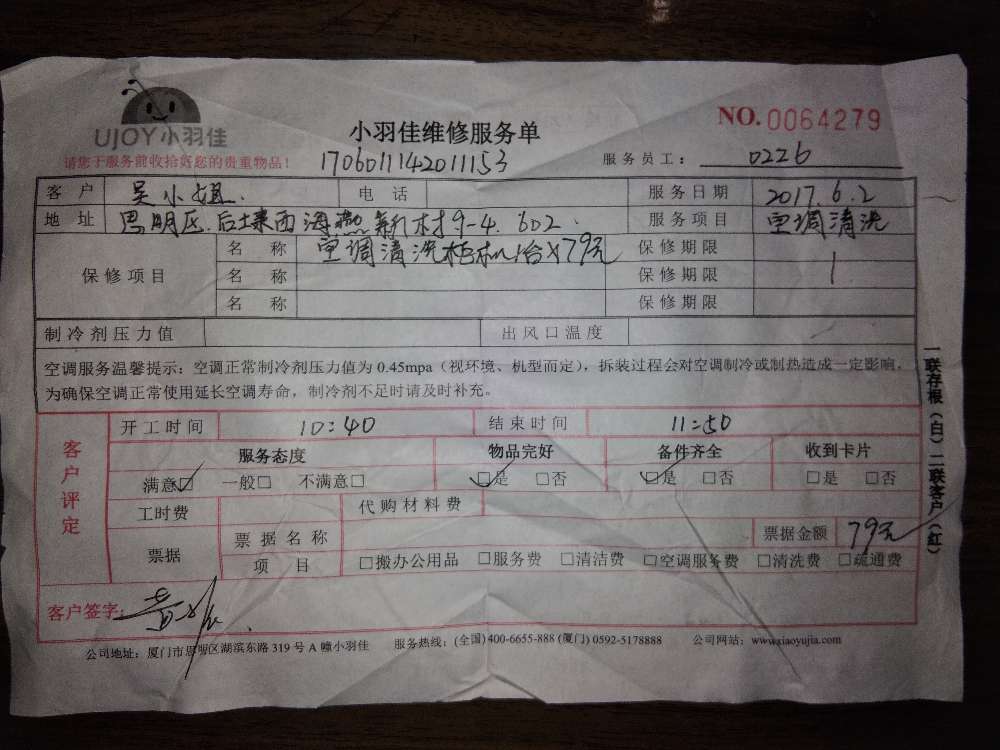 UJOY小羽佳
小羽佳维修服务单
NO.0064279
请您于服务前收拾好您的贵重物品！
1706011142011153
服务员工： 0226
客户 吴小姐. 电话 服务日期 2017.6.2
地址 思明区.后埭西海燕新村9-4.602. 服务项目 空调清洗
保修项目 名称 空调清洗柜机1台×79元 保修期限
名称 保修期限 1
名称 保修期限
制冷剂压力值 出风口温度
空调服务温馨提示：空调正常制冷剂压力值为0.45mpa（视环境、机型而定），拆装过程会对空调制冷或制热造成一定影响，
为确保空调正常使用延长空调寿命，制冷剂不足时请及时补充。
客户评定
开工时间 10:40 结束时间 11:50
服务态度 物品完好 备件齐全 收到卡片
满意□ 一般□ 不满意□ □是 □否 □是 □否 □是 □否
工时费 代购材料费
票据 票据名称 票据金额 79元
项目 □搬办公用品 □服务费 □清洁费 □空调服务费 □清洗费 □疏通费
客户签字：
公司地址：厦门市思明区湖滨东路319号A幢小羽佳 服务热线：(全国)400-6655-888 (厦门) 0592-5178888 公司网站：www.xiaoyujia.com
一联存根（白）二联客户（红）